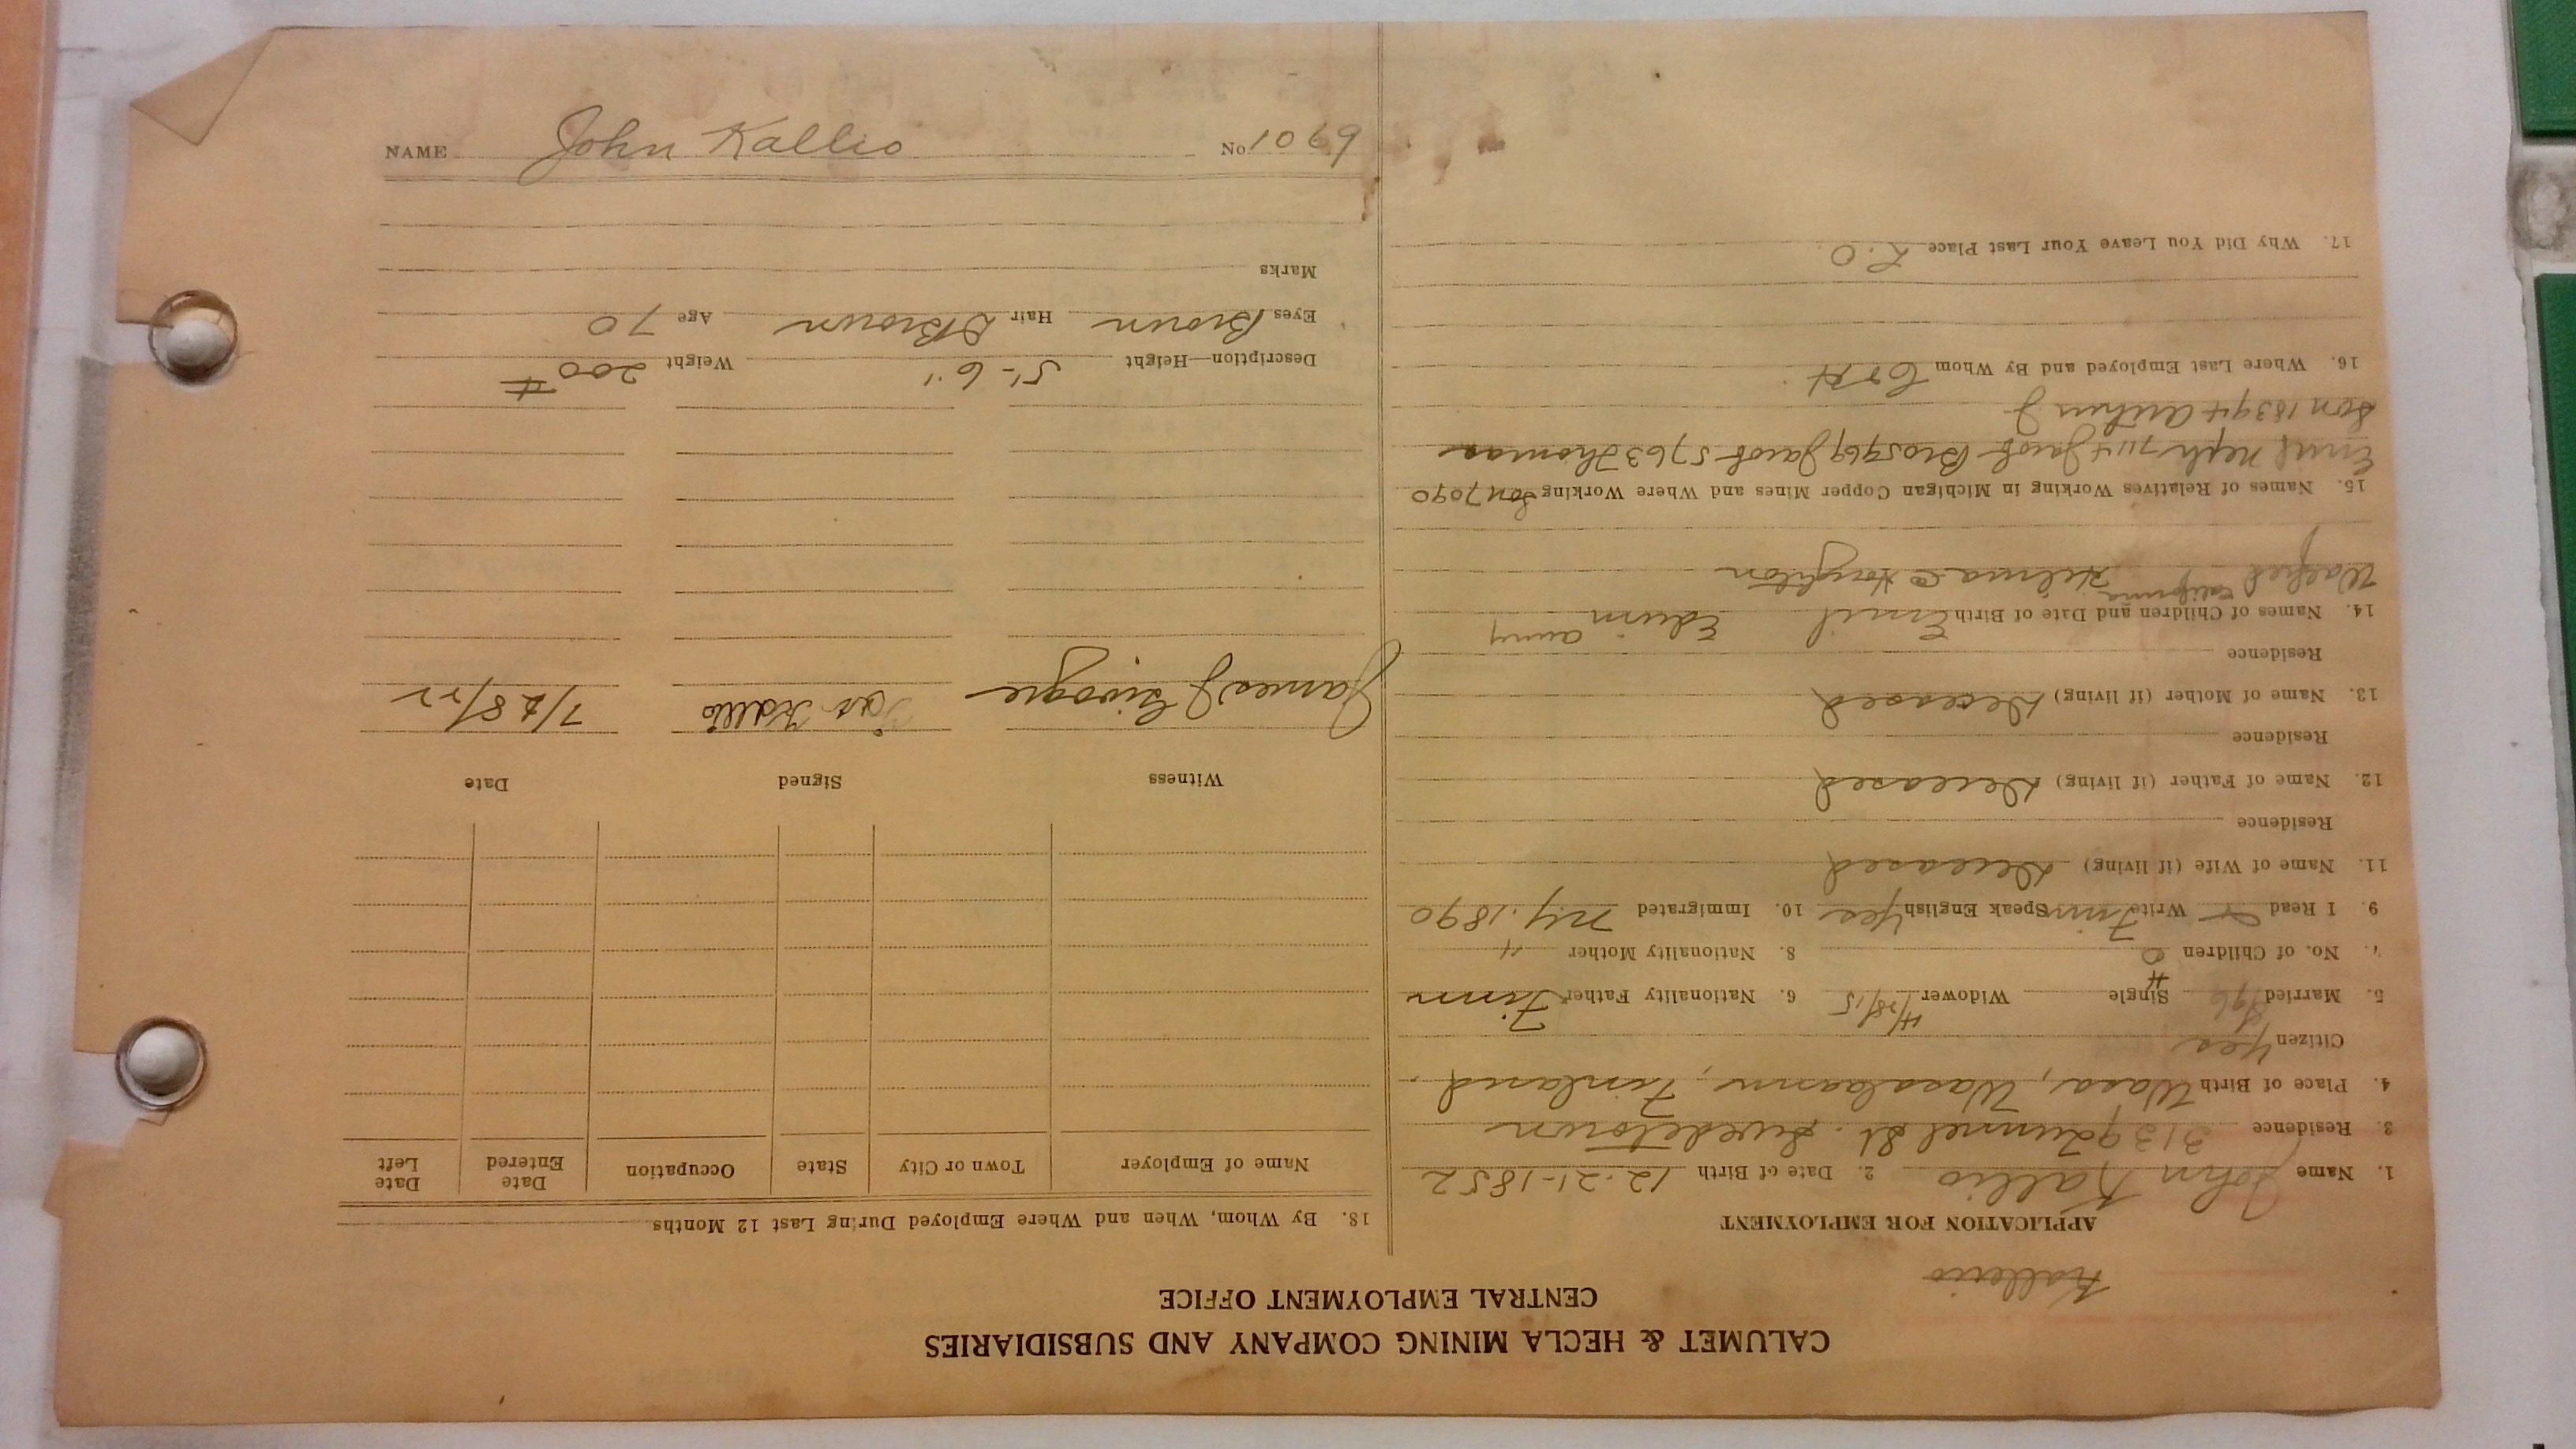 CALUMET & HECLA MINING COMPANY AND SUBSIDIARIES
CENTRAL EMPLOYMENT OFFICE
Kallio
APPLICATION FOR EMPLOYMENT
1. Name John Kallio 2. Date of Birth 12-21-1852
3. Residence 3139 Tunnel St. Swedetown
4. Place of Birth Wasa, Wasalaanni, Finland.
Citizen Yes
5. Married Single Widower 4/28/15 6. Nationality Father Finn
7. No. of Children 8. Nationality Mother "
9. I Read Write Finn Speak English Yes 10. Immigrated N.Y. 1890
11. Name of Wife (if living) Deceased
Residence
12. Name of Father (if living) Deceased
Residence
13. Name of Mother (if living) Deceased
Residence
14. Names of Children and Date of Birth Emil Edwin army
Walfred California Hilma Houghton
15. Names of Relatives Working in Michigan Copper Mines and Where Working Son 7090
Emil Neph 7114 Jacob Bro 5969 Jacob 5763 Thomas
Son 18394 J
16. Where Last Employed and By Whom C & H
17. Why Did You Leave Your Last Place L.O.
18. By Whom, When and Where Employed During Last 12 Months
Name of Employer Town or City State Occupation Date Entered Date Left
Witness Signed Date
James J Kallio 7/28/22
Description—Height 5'-6" Weight 200#
Eyes Brown Hair D Brown Age 70
Marks
NAME John Kallio No 1079